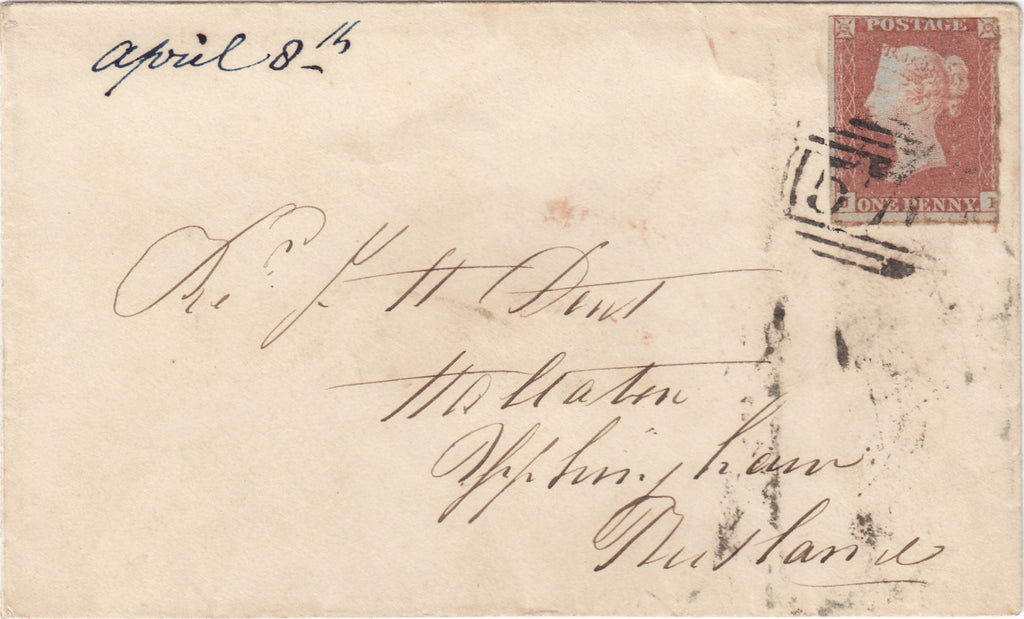 april 8th
POSTAGE
ONE PENNY
I
57
Rev. J H Dent
Hallaton
Uppingham
Rutland